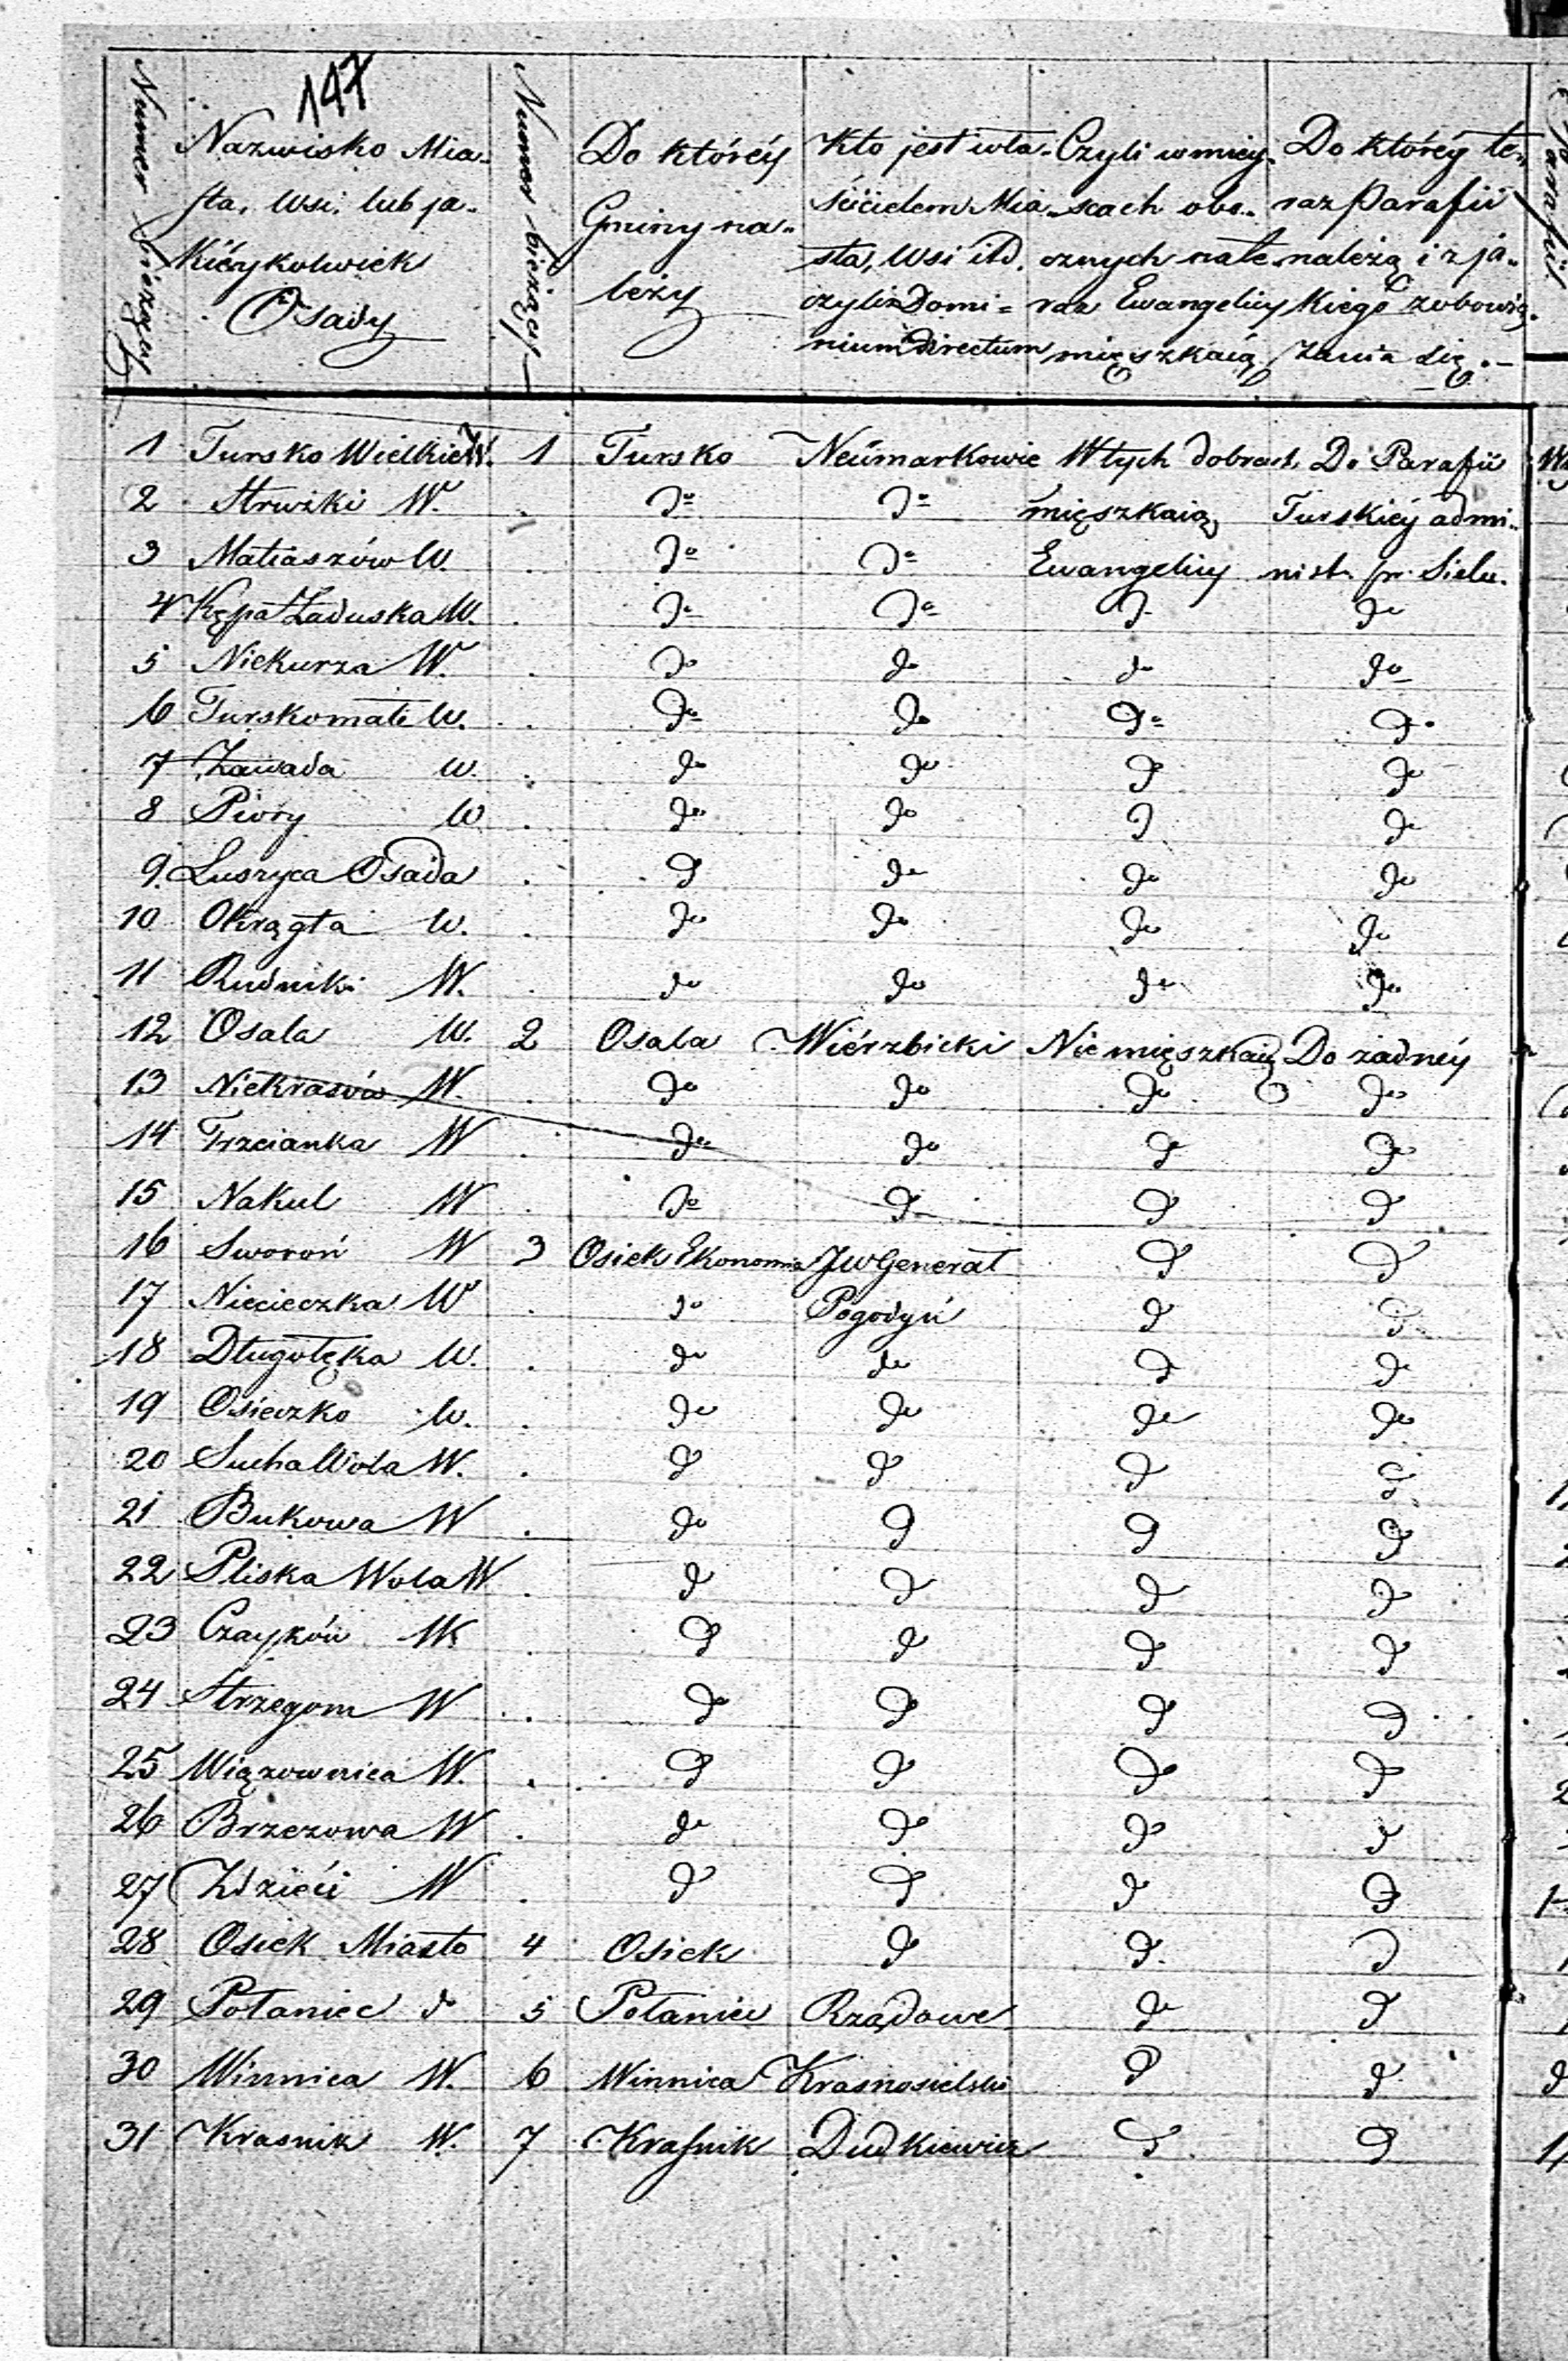 147
Numer bieżący
Nazwisko Mia-
sta, Wsi, lub ja-
kiéykolwiek
Osady
Numer bieżący
Do któréy
Gminy na-
leży
Kto jest wła-
ścicielem Mia-
sta, Wsi itd.
czyli Domi=
nium Directum
Czyli w miey-
scach obo-
cznych nate
raz Ewangelicy
mięszkaią
Do któréy te-
raz Parafii
należą i z ja-
kiego zobowią-
zania się.-
1 Tursko Wielkie W. 1 Tursko Neümarkowie W tych dobrach Do Parafii
2 Strużki W. do do mięszkaią Turskiéy admi-
3 Matiaszów W do do Ewangelicy nist. pr. Sielu.
4 Kępa Zaduska W. do do do do
5 Niekurza W. do do do do
6 Tursko małe W. do do do do
7 Zawada W. do do do do
8 Piory W do do do do
9. Luszyca Osada do do do do
10 Okrągła W. do do do do
11 Rudniki W. do do do do
12 Osala W. 2 Osala Wiérzbicki Nie mięszkaią Do żadnéy
13 Niekrasów W. do do do do
14 Trzcianka W do do do do
15 Nakul W do do do do
16 Sworoń W 3 Osiek Ekonomia JW Generał do do
17 Niecieczka W do Pogodyń do do
18 Długołęka W. do do do do
19 Osieczko W. do do do do
20 Sucha Wola W. do do do do
21 Bukowa W do do do do
22 Pliska Wola W do do do do
23 Czayków W do do do do
24 Strzegom W do do do do
25 Wiązownica W. do do do do
26 Brzezowa W do do do do
27 Zdzieci W do do do do
28 Osiek Miasto 4 Osiek do do do
29 Połaniec do 5 Połaniec Rządowe do do
30 Winnica W. 6 Winnica Krasnosielski do do
31 Krasnik W. 7 Kraſnik Dudkiewicz do do